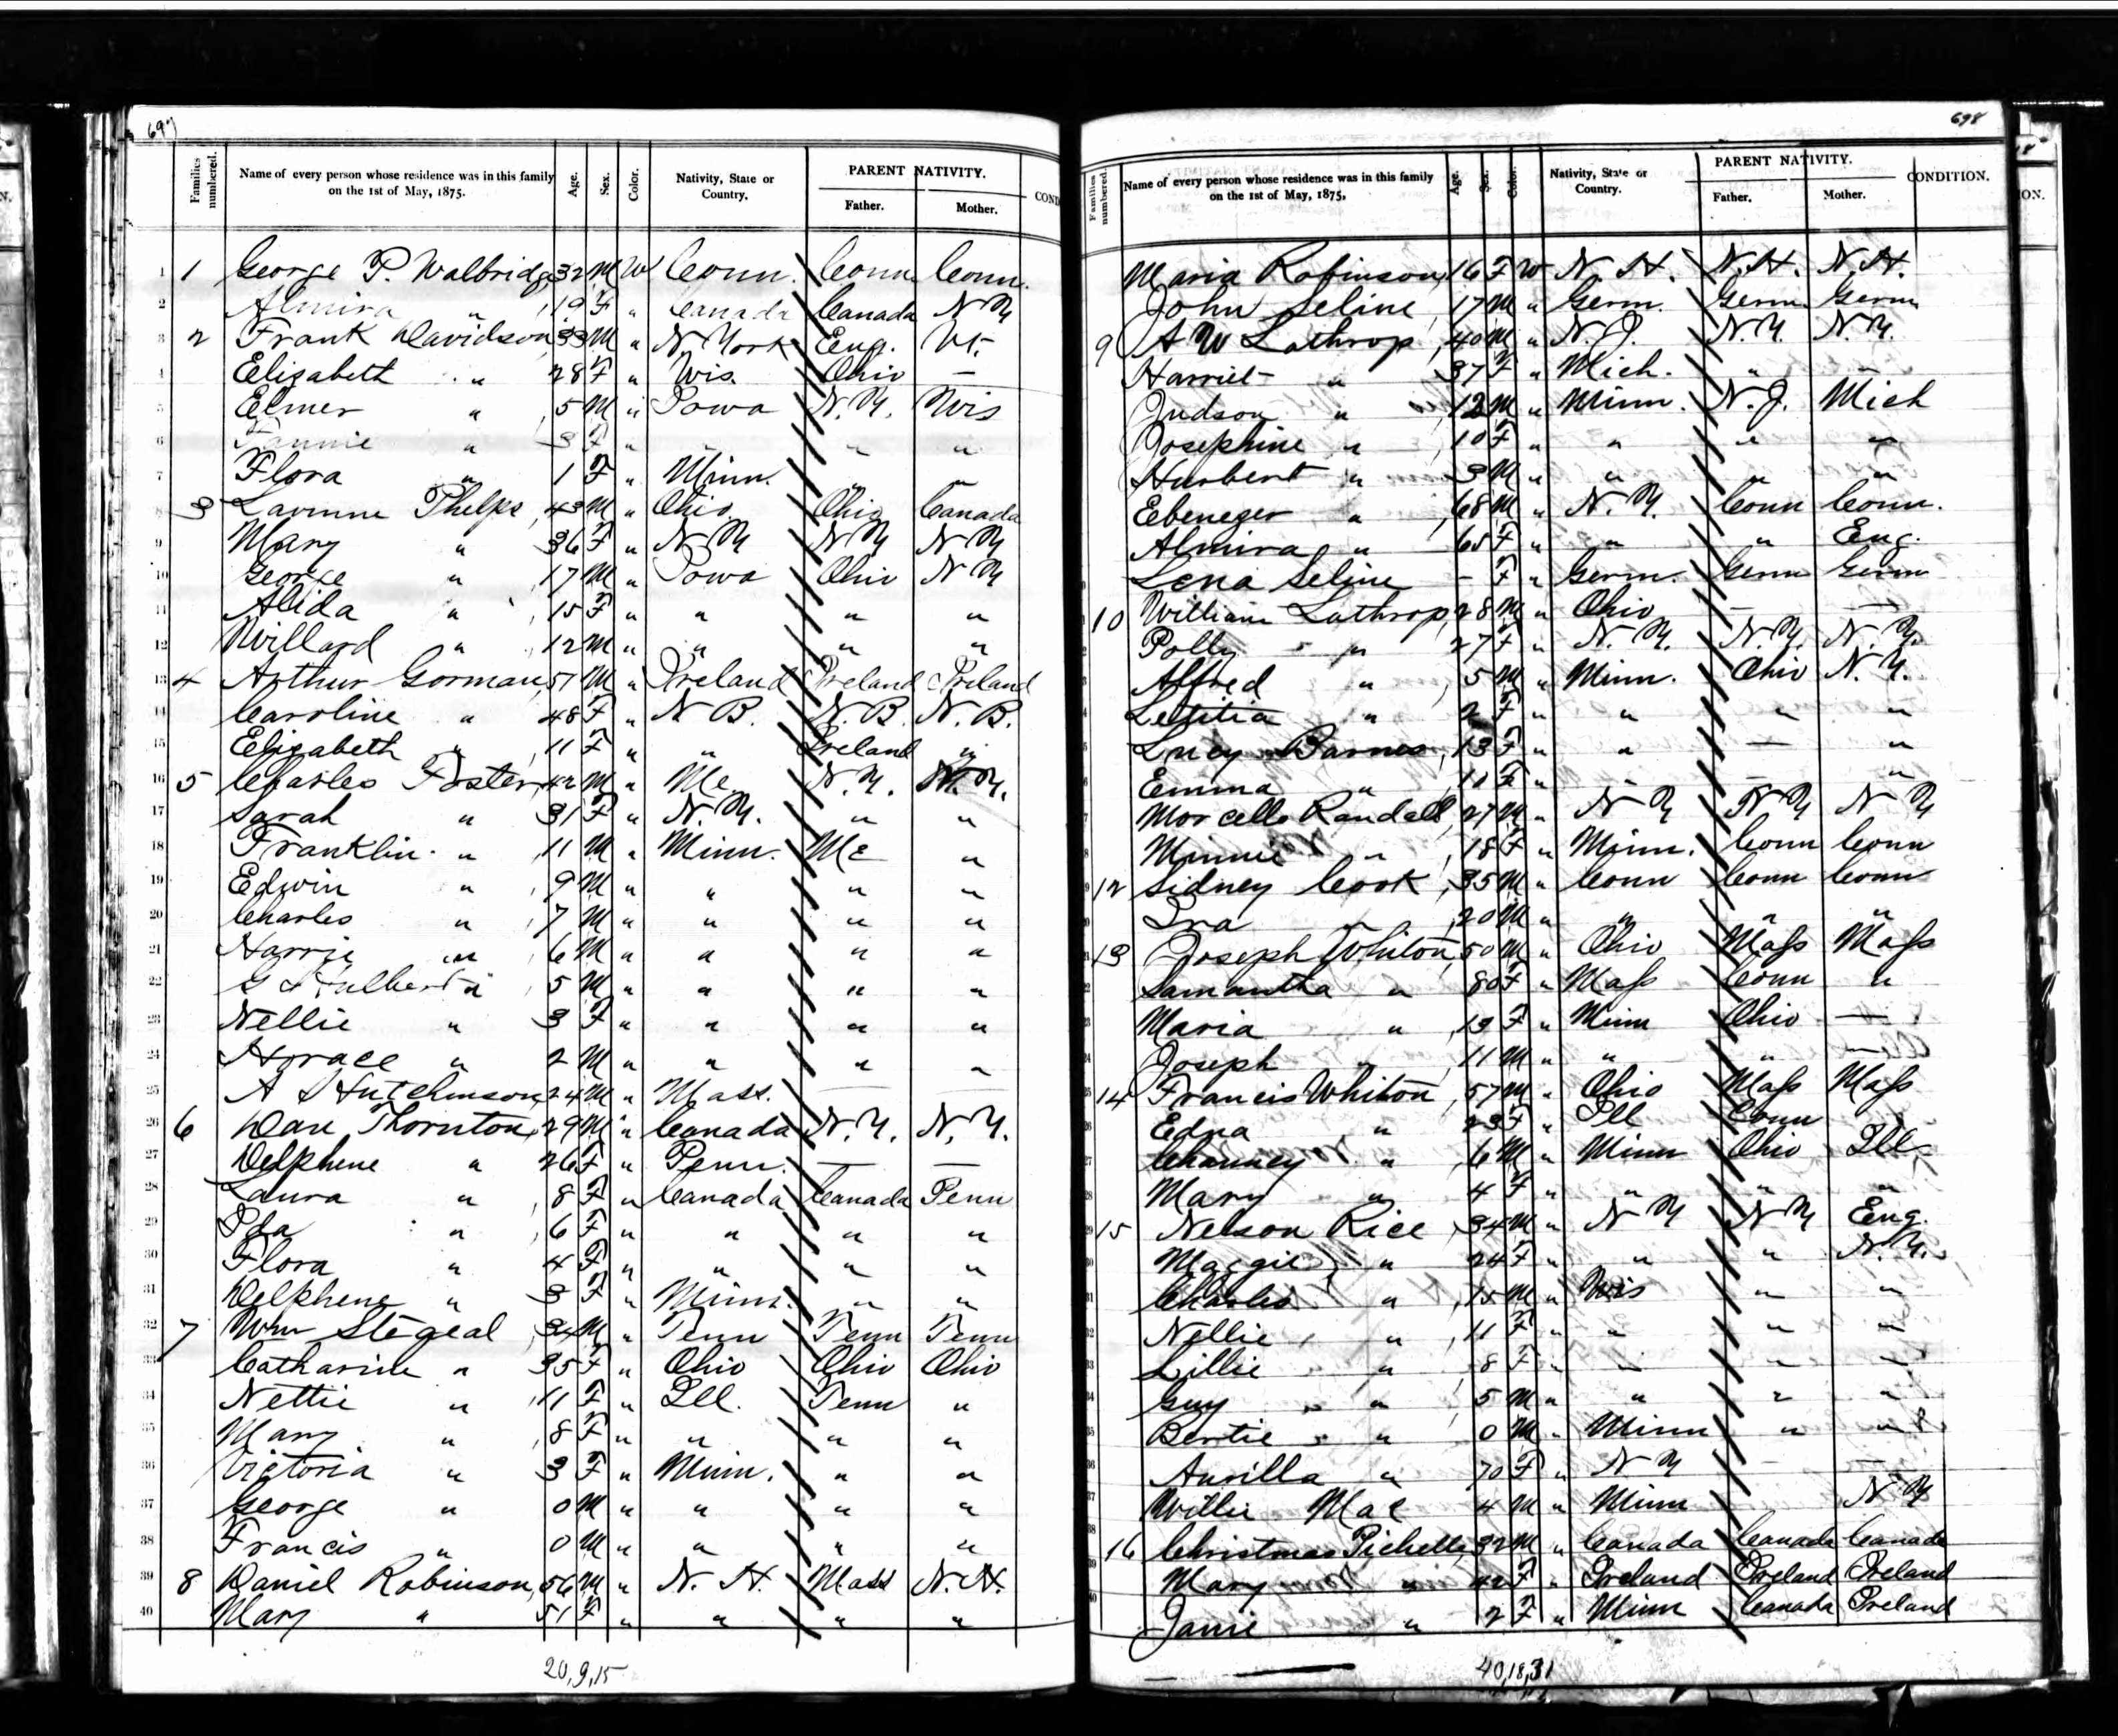 697
Families numbered. Name of every person whose residence was in this family on the 1st of May, 1875. Age. Sex. Color. Nativity, State or Country. PARENT NATIVITY. Father. Mother. COND
1 1 George P. Walbridge 32 M W Conn. Conn. Conn.
2 Almira " 19 F " Canada Canada N Y
3 2 Frank Davidson 33 M " N York Eng. Vt.
4 Elizabeth " 28 F " Wis. Ohio —
5 Elmer " 5 M " Iowa N.Y. Wis
6 Fannie " 3 F " " " "
7 Flora " 1 F " Minn. " "
8 3 Phelps 43 M " Ohio Ohio Canada
9 Mary " 36 F " N Y N Y N Y
10 George " 17 M " Iowa Ohio N Y
11 Alida " 15 F " " " "
12 Willard " 12 M " " " "
13 4 Arthur Gorman 51 M " Ireland Ireland Ireland
14 Caroline " 48 F " N B. N. B. N. B.
15 Elizabeth " 11 F " " Ireland "
16 5 Charles Foster 42 M " Me. N.Y. N.Y.
17 Sarah " 31 F " N.Y. " "
18 Franklin " 11 M " Minn. ME "
19 Edwin " 9 M " " " "
20 Charles " 7 M " " " "
21 Harrie " 6 M " " " "
22 G " 5 M " " " "
23 Nellie " 3 F " " " "
24 Horace " 2 M " " " "
25 A S Hutchinson 24 M " Mass.
26 6 Dan Thornton 29 M " Canada N.Y. N.Y.
27 Delphene " 26 F " Penn. — —
28 Laura " 8 F " Canada Canada Penn
29 Ida " 6 F " " " "
30 Flora " 4 F " " " "
31 Delphene " 3 F " Minn. " "
32 7 Wm Stegeal 34 M " Penn Penn Penn
33 Catharine " 35 F " Ohio Ohio Ohio
34 Nettie " 11 F " Ill. Penn "
35 Mary " 8 F " " " "
36 Victoria " 3 F " Minn. " "
37 George " 0 M " " " "
38 Francis " 0 M " " " "
39 8 Daniel Robinson 56 M " N. H. Mass N.H.
40 Mary " 51 F " " " "
20, 9, 15
698
Families numbered. Name of every person whose residence was in this family on the 1st of May, 1875, Age. Sex. Color. Nativity, State or Country. PARENT NATIVITY. Father. Mother. CONDITION.
Maria Robinson 16 F W N. H. N.H. N.H.
John Seline 17 M " Germ. Germ Germ
9 A W Lathrop 40 M " N.J. N.Y. N.Y.
Harriet " 37 F " Mich. " "
Judson " 12 M " Minn. N.J. Mich
Josephine " 10 F " " " "
Hurbert " 3 M " " " "
Ebenezer " 68 M " N.Y. Conn Conn.
Almira " 65 F " " " Eng.
Lena Seline - F " Germ. Germ Germ
10 William Lathrop 28 M " Ohio — —
Polly " 27 F " N.Y. N.Y. N.Y.
Alfred " 5 M " Minn. Ohio N.Y.
Letitia " 2 F " " " "
Lucy Barnes 13 F " " — "
Emma " 11 F " " — "
Marcello Randall 27 M " N Y N Y N Y
Minnie " 18 F " Minn. Conn Conn
12 Sidney Cook 35 M " Conn Conn Conn
Ira " 20 M " " " "
13 Joseph Whiton 50 M " Ohio Mass Mass
Samantha " 80 F " Mass Conn "
Maria " 13 F " Minn Ohio —
Joseph " 11 M " " " —
14 Francis Whiton 57 M " Ohio Mass Mass
Edna " 23 F " Ill Conn
Chauncey " 6 M " Minn Ohio Ill
Mary " 4 F " " " "
15 Nelson Rice 34 M " N Y N Y Eng.
Maggie " 24 F " " " N.Y.
Charles " 15 M " Wis " "
Nellie " 11 F " " " "
Lillie " 8 F " " " "
Guy " 5 M " " " "
Bertie " 0 M " Minn " "
Aurilla " 70 F " N Y - —
Willie Mac 4 M " Minn N Y
16 Christmas Pichette 32 M " Canada Canada Canada
Mary " 42 F " Ireland Ireland Ireland
Janie " 2 F " Minn Canada Ireland
40, 18, 31